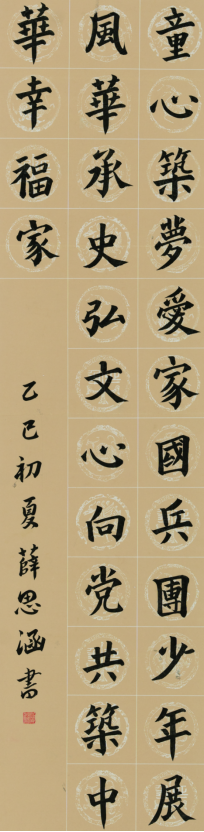 童心築夢愛家國兵團少年展
風華承史弘文心向党共築中
華幸福家
乙巳初夏薛思涵書